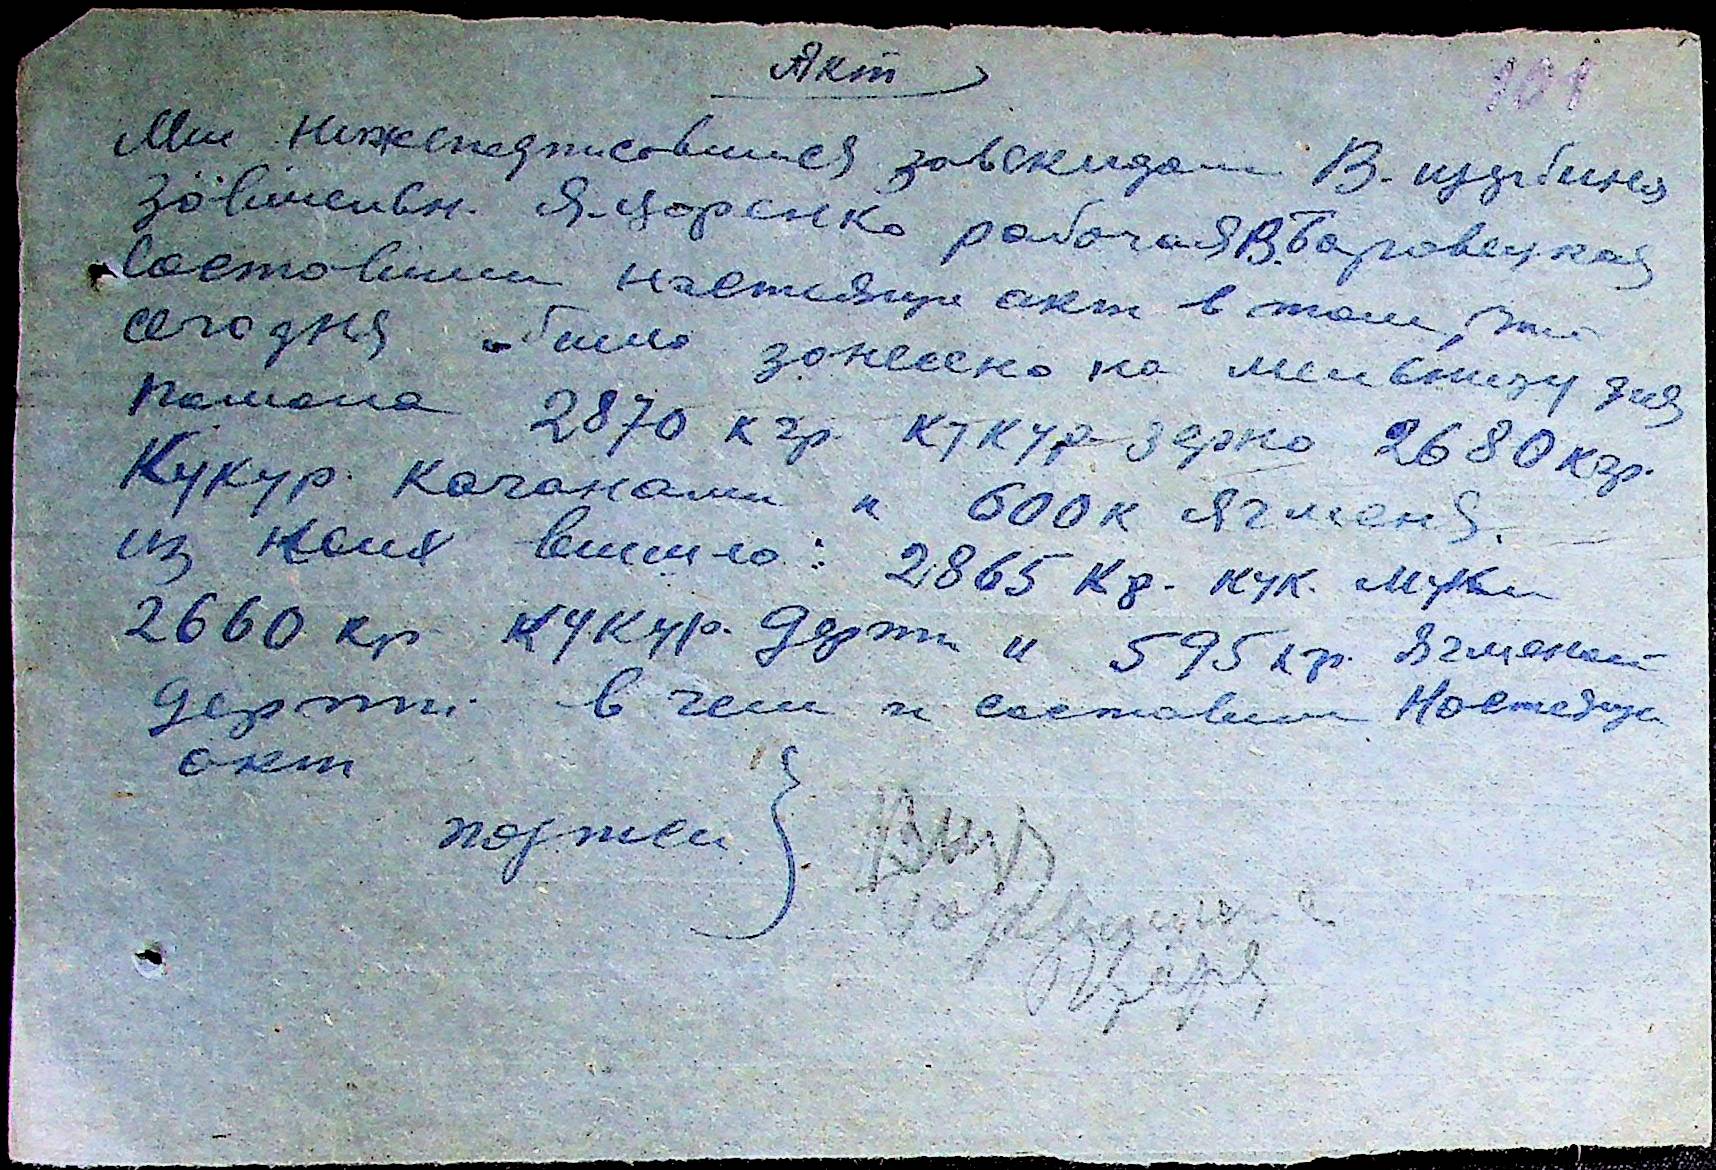 Акт
101
Ми нижеподписовшиеся завскладом В.
завмельн. Я. Цоренко рабочая В. Боровецкая
Составили настояще акт в том, что
сегодня было зонесено на мельницу для
помола 2870 кгр кукур зерно 2680 кгр.
Кукур. качанами и 600 к ячменя.
из коих вишло: 2865 кг. кук. муки
2660 кр кукур. дерти и 595 кр. ячменой
дерти. в чем и составили Ностояще
акт